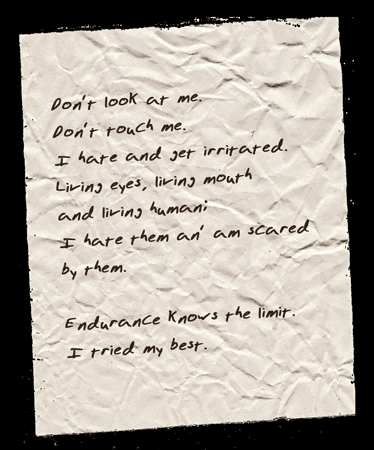 Don't look at me.
Don't touch me.
I hate and get irritated.
Living eyes, living mouth
and living human;
I hate them an' am scared
by them.
Endurance knows the limit.
I tried my best.